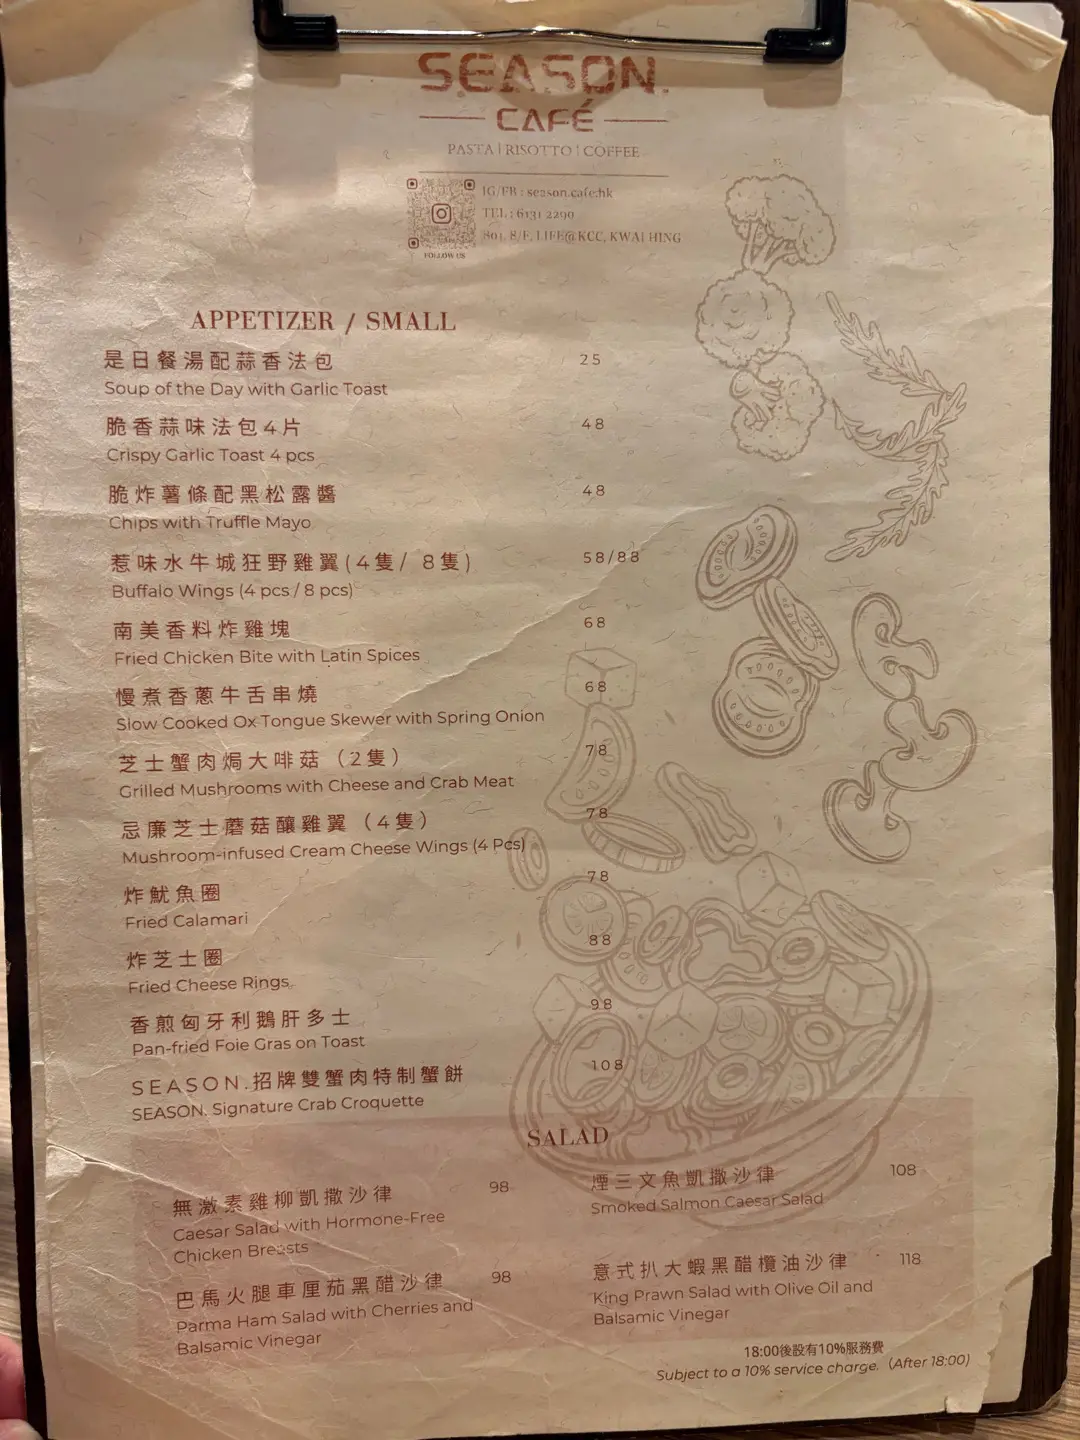 SEASON.
CAFÉ
PASTA | RISOTTO | COFFEE
IG/FB : season.cafe.hk
TEL : 6131 2290
801, 8/F, LIFE@KCC, KWAI HING
FOLLOW US
APPETIZER / SMALL
是日餐湯配蒜香法包 25
Soup of the Day with Garlic Toast
脆香蒜味法包4片 48
Crispy Garlic Toast 4 pcs
脆炸薯條配黑松露醬 48
Chips with Truffle Mayo
惹味水牛城狂野雞翼(4隻/ 8隻) 58/88
Buffalo Wings (4 pcs / 8 pcs)
南美香料炸雞塊 68
Fried Chicken Bite with Latin Spices
慢煮香蔥牛舌串燒 68
Slow Cooked Ox Tongue Skewer with Spring Onion
芝士蟹肉焗大啡菇（2隻） 78
Grilled Mushrooms with Cheese and Crab Meat
忌廉芝士蘑菇釀雞翼（4隻） 78
Mushroom-infused Cream Cheese Wings (4 Pcs)
炸魷魚圈 78
Fried Calamari
炸芝士圈 88
Fried Cheese Rings
香煎匈牙利鵝肝多士 98
Pan-fried Foie Gras on Toast
SEASON.招牌雙蟹肉特制蟹餅 108
SEASON. Signature Crab Croquette
SALAD
無激素雞柳凱撒沙律 98
Caesar Salad with Hormone-Free
Chicken Breasts
巴馬火腿車厘茄黑醋沙律 98
Parma Ham Salad with Cherries and
Balsamic Vinegar
煙三文魚凱撒沙律 108
Smoked Salmon Caesar Salad
意式扒大蝦黑醋欖油沙律 118
King Prawn Salad with Olive Oil and
Balsamic Vinegar
18:00後設有10%服務費
Subject to a 10% service charge. (After 18:00)